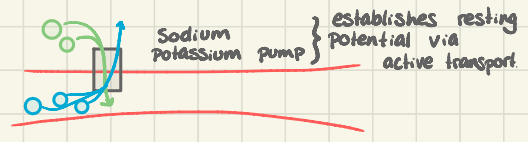 Sodium
Potassium pump
establishes resting
potential via
active transport.